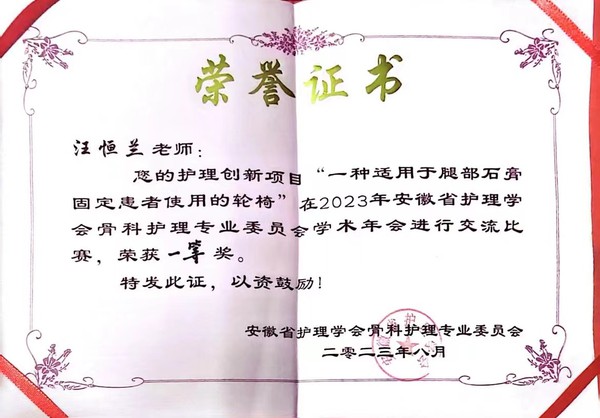 荣誉证书
汪恒兰老师：
您的护理创新项目“一种适用于腿部石膏
固定患者使用的轮椅”在2023年安徽省护理学
会骨科护理专业委员会学术年会进行交流比
赛，荣获一等奖。
特发此证，以资鼓励！
安徽省护理学会骨科护理专业委员会
二零二三年八月